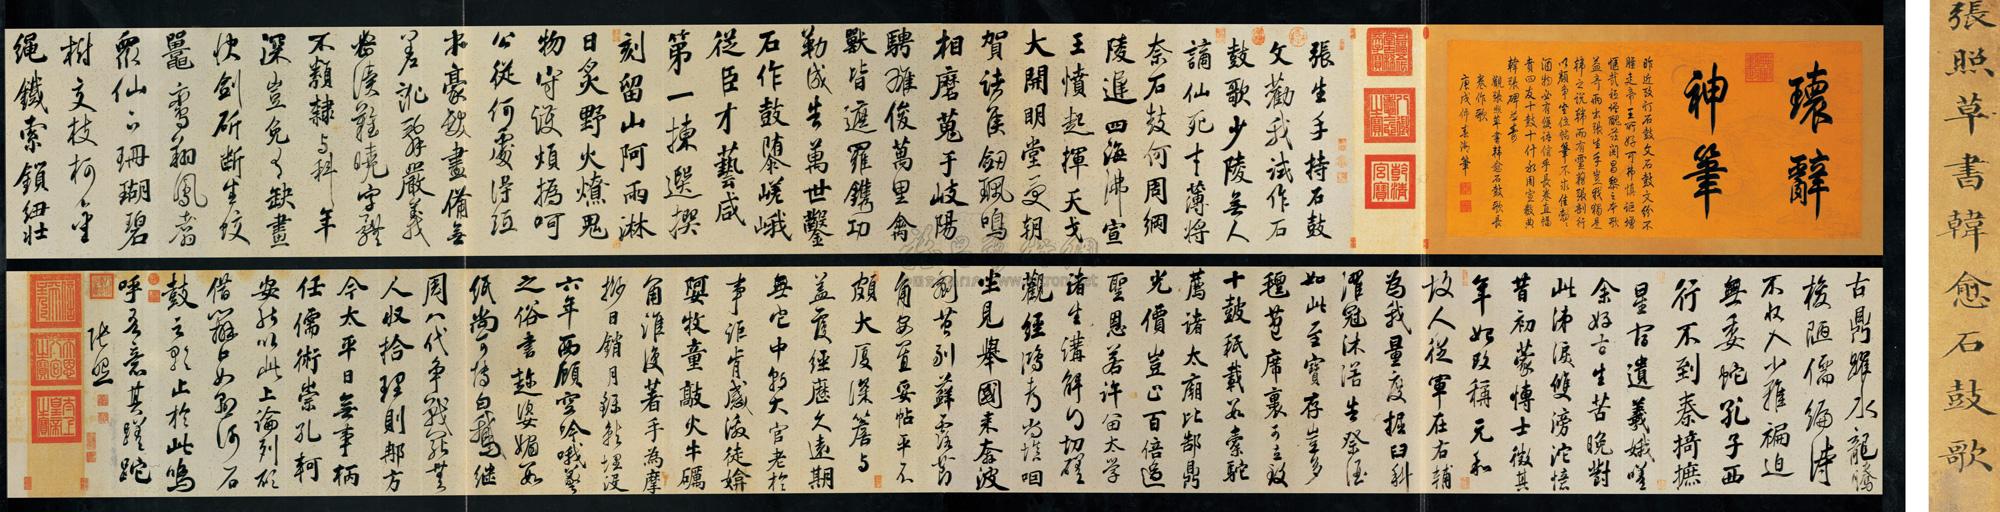 張照草書韓愈石鼓歌
瓌辭
神筆
觀張照草書韓愈石鼓歌長
卷作歌
庚戌仲春御筆
張生手持石鼓
文勸我試作石
鼓歌少陵無人
謫仙死才薄將
奈石鼓何周綱
陵遲四海沸宣
王憤起揮天戈
大開明堂受朝
賀諸侯劍珮鳴
相磨蒐于岐陽
騁雄俊萬里禽
獸皆遮羅鐫功
勒成告萬世鑿
石作鼓隳嵯峨
從臣才藝咸
第一揀選撰
刻留山阿雨淋
日炙野火燎鬼
物守護煩撝呵
公從何處得紙
本毫髮盡備無
差訛辭嚴義
密讀難曉字體
不類隸與科年
深豈免有缺畫
快劍斫斷生蛟
鼉鸞翔鳳翥
眾仙下珊瑚碧
樹交枝柯金
繩鐵索鎖紐壯
古鼎躍水龍騰
梭陋儒編詩
不收入二雅褊迫
無委蛇孔子西
行不到秦掎摭
星宿遺羲娥嗟
余好古生苦晚對
此涕淚雙滂沱憶
昔初蒙博士徵其
年始改稱元和
故人從軍在右輔
為我量度掘臼科
濯冠沐浴告祭酒
如此至寶存豈多
氈苞席裹可立致
十鼓秖載數橐駝
薦諸太廟比郜鼎
光價豈止百倍過
聖恩若許留太學
諸生講解得切磋
觀經鴻都尚填咽
坐見舉國來奔波
剜苔剔蘚露節
角安置妥帖平不
頗大廈深簷與
蓋覆經歷久遠期
無它中朝大官老於
事詎肯感激徒媕
婀牧童敲火牛礪
角誰復著手為摩
挲日銷月鑠就埋沒
六年西顧空吟哦羲
之俗書趁姿媚數
紙尚可博白鵝繼
周八代爭戰罷無
人收拾理則那方
今太平日無事柄
任儒術崇孔軻
安能以此上論列願
借辯口如懸河石
鼓之歌止於此嗚
呼吾意其蹉跎
張照